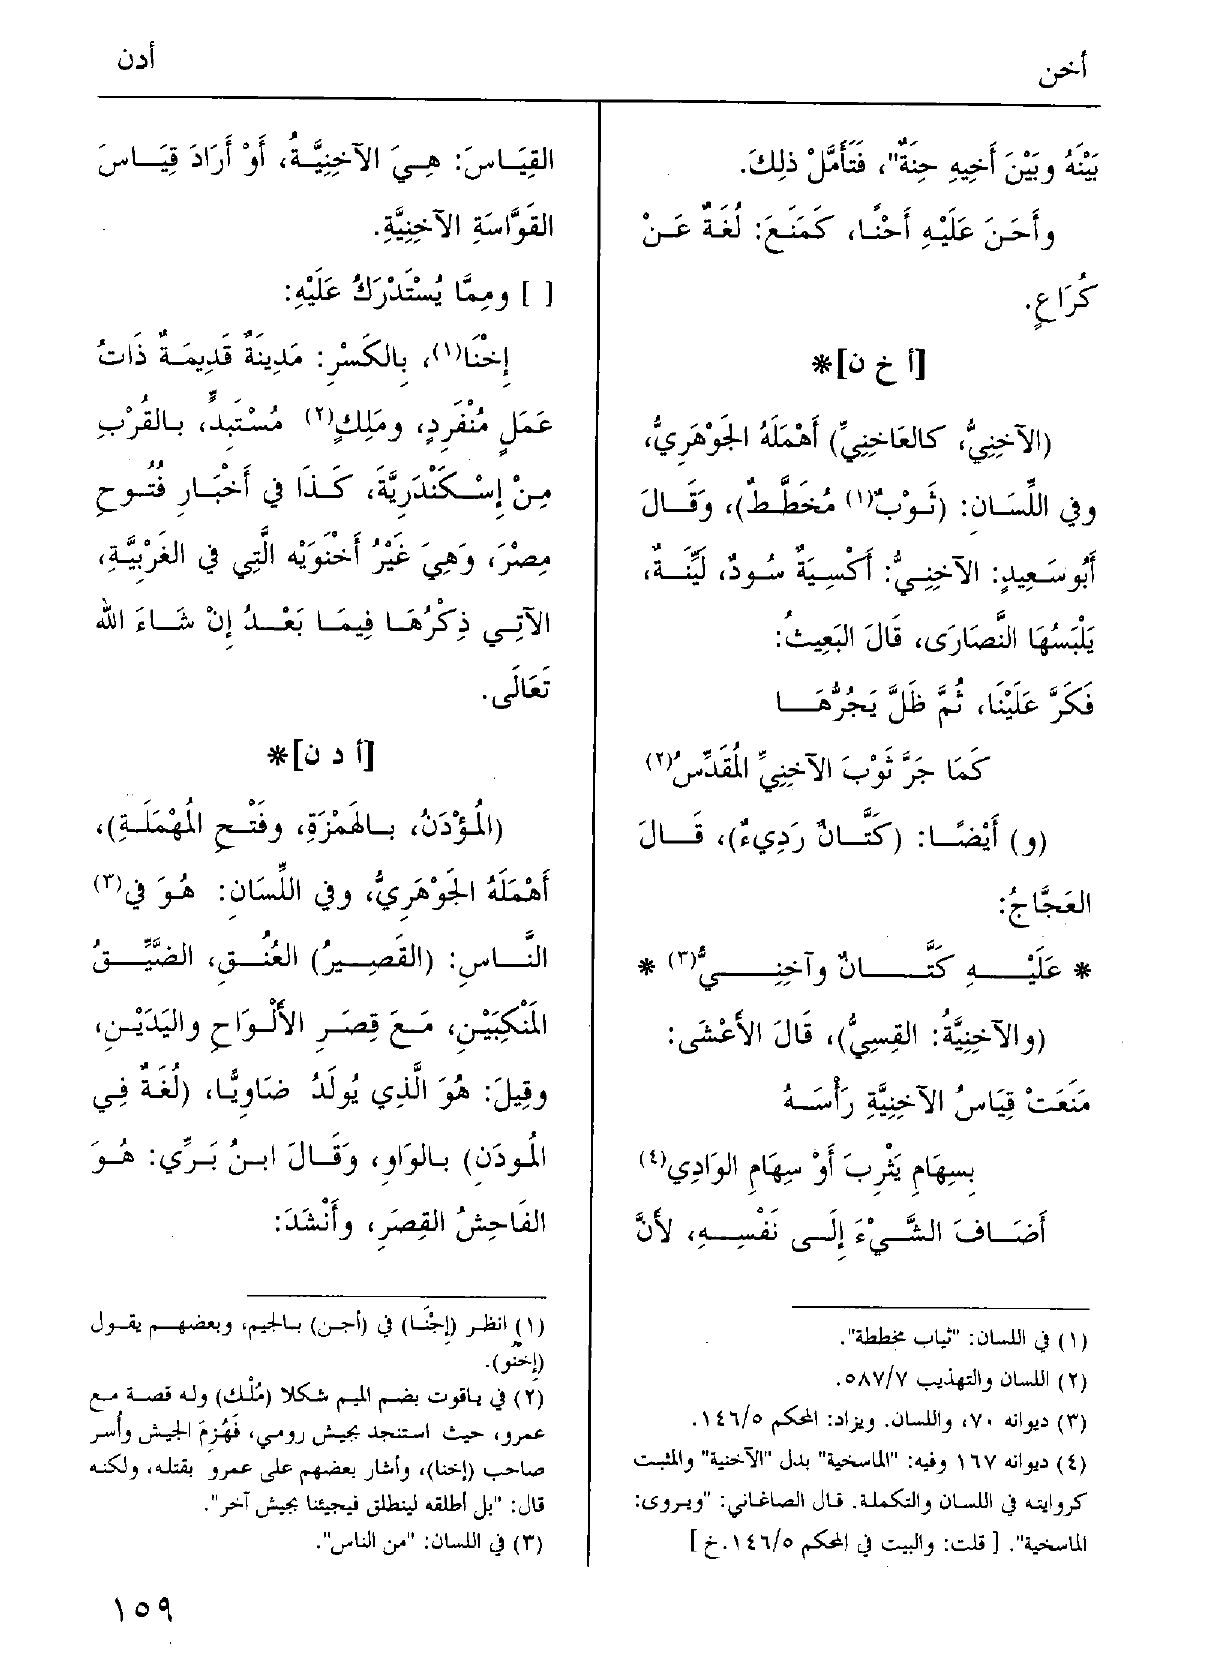 أخن
أدن
بَيْنَهُ وبَيْنَ أَخِيهِ حِنَةٌ"، فَتَأَمَّلْ ذلِكَ.
وأَحَنَ عَلَيْهِ أَحْنًـا، كَمَنَعَ: لُغَةٌ عَنْ
كُرَاعٍ.
[أ خ ن]*
(الآخِنِيُّ، كالعَاخِنِيِّ) أَهْمَلَهُ الجَوْهَرِيُّ،
وفي اللِّسَانِ: (ثَوْبٌ(١) مُخَطَّطٌ)، وَقَالَ
أَبُو سَعِيدٍ: الآخِنِيُّ: أَكْسِيَةٌ سُودٌ، لَيِّنَةٌ،
يَلْبَسُهَا النَّصَارَى، قَالَ البَعِيثُ:
فَكَرَّ عَلَيْنَا، ثُمَّ ظَلَّ يَجُرُّهَا
كَمَا جَرَّ ثَوْبَ الآخِنِيِّ المُقَدِّسُ(٢)
(و) أَيْضًا: (كَتَّانٌ رَدِيءٌ)، قَالَ
العَجَّاجُ:
* عَلَيْهِ كَتَّانٌ وآخِنِيُّ(٣) *
(والآخِنِيَّةُ: القِسِيُّ)، قَالَ الأَعْشَى:
مَنَعَتْ قِيَاسُ الآخِنِيَّةِ رَأْسَهُ
بِسِهَامِ يَثْرِبَ أَوْ سِهَامِ الوَادِي(٤)
أَضَافَ الشَّيْءَ إِلَى نَفْسِهِ، لأَنَّ
(١) في اللسان: "ثياب مخططة".
(٢) اللسان والتهذيب ٥٨٧/٧.
(٣) ديوانه ٧٠، واللسان. ويزاد: المحكم ١٤٦/٥.
(٤) ديوانه ١٦٧ وفيه: "الماسخية" بدل "الآخنية" والمثبت
كروايته في اللسان والتكملة. قال الصاغاني: "ويروى:
الماسخية". [ قلت: والبيت في المحكم ١٤٦/٥.خ ]
القِيَاسَ: هِيَ الآخِنِيَّةُ، أَوْ أَرَادَ قِيَاسَ
القَوَّاسَةِ الآخِنِيَّةِ.
[ ] ومِمَّا يُسْتَدْرَكُ عَلَيْهِ:
إِخْنَا(١)، بِالكَسْرِ: مَدِينَةٌ قَدِيمَةٌ ذَاتُ
عَمَلٍ مُنْفَرِدٍ، ومَلِكٍ(٢) مُسْتَبِدٍّ، بالقُرْبِ
مِنْ إِسْكَنْدَرِيَّةَ، كَذَا في أَخْبَارِ فُتُوحِ
مِصْرَ، وَهِيَ غَيْرُ أخْنَوَيْه الَّتِي في الغَرْبِيَّةِ،
الآتِي ذِكْرُهَا فِيمَا بَعْدُ إِنْ شَاءَ الله
تَعَالَى.
[أ د ن]*
(المُؤْدَنُ، بالهَمْزَةِ، وفَتْحِ المُهْمَلَةِ)،
أَهْمَلَهُ الجَوْهَرِيُّ، وفي اللِّسَانِ: هُوَ في(٣)
النَّاسِ: (القَصِيرُ) العُنُقِ، الضَّيِّقُ
المَنْكِبَيْنِ، مَعَ قِصَرِ الأَلْوَاحِ واليَدَيْنِ،
وقِيلَ: هُوَ الَّذِي يُولَدُ ضَاوِيًّا، (لُغَةٌ فِي
المُودَنِ) بالوَاوِ، وَقَالَ ابنُ بَرِّي: هُوَ
الفَاحِشُ القِصَرِ، وأَنْشَدَ:
(١) انظر (إِجْنَا) في (أجن) بالجيم، وبعضهم يقول
(إخنو).
(٢) في ياقوت بضم الميم شكلا (مُلْك) وله قصة مع
عمرو، حيث استنجد بجيش رومي، فَهُزِمَ الجيش وأسر
صاحب (إخنا)، وأشار بعضهم على عمرو بقتله، ولكنه
قال: "بل أطلقه لينطلق فيجيئنا بجيش آخر".
(٣) في اللسان: "من الناس".
١٥٩